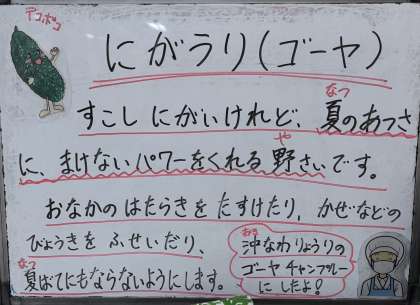 デコボコ
にがうり(ゴーヤ)
なつ
すこし にがいけれど、夏のあつさ
や
に、まけないパワーをくれる野さいです。
おなかの はたらきを たすけたり、かぜなどの
びょうきを ふせいだり、
なつ
夏ばてにもならないようにします。
おき
沖なわりょうりの
ゴーヤチャンプルー
にしたよ!